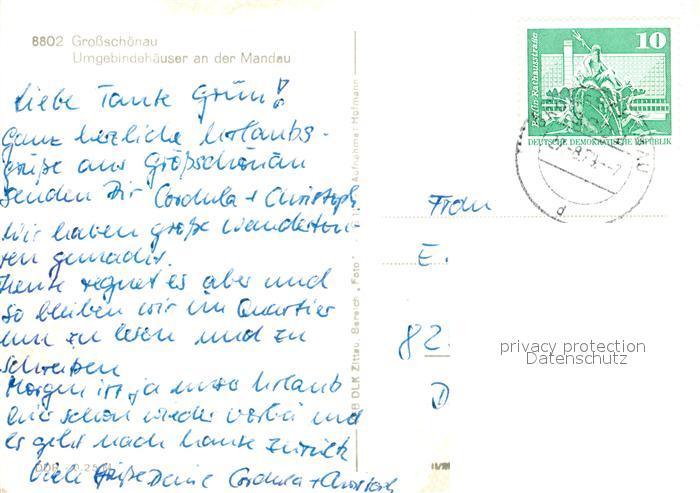 8802 Großschönau
Umgebindehäuser an der Mandau
Liebe Tante Grün!
Ganz herzliche Urlaubs-
grüße aus Großschönau
senden Dir Cordula + Christoph
Wir haben große Wandertou-
ren gemacht.
Heute regnet es aber und
so bleiben wir im Quartier
um zu lesen und zu
schreiben
Morgen ist ja unser Urlaub
hier schon wieder vorbei und
es geht nach Hause zurück
Viele Grüße Deine Cordula + Christoph
DLK Zittau, Bereich „Foto“
Aufnahme: Hofmann
Berlin, Rathausstraße
10
DEUTSCHE DEMOKRATISCHE REPUBLIK
Frau
E.
82
D
privacy protection
Datenschutz